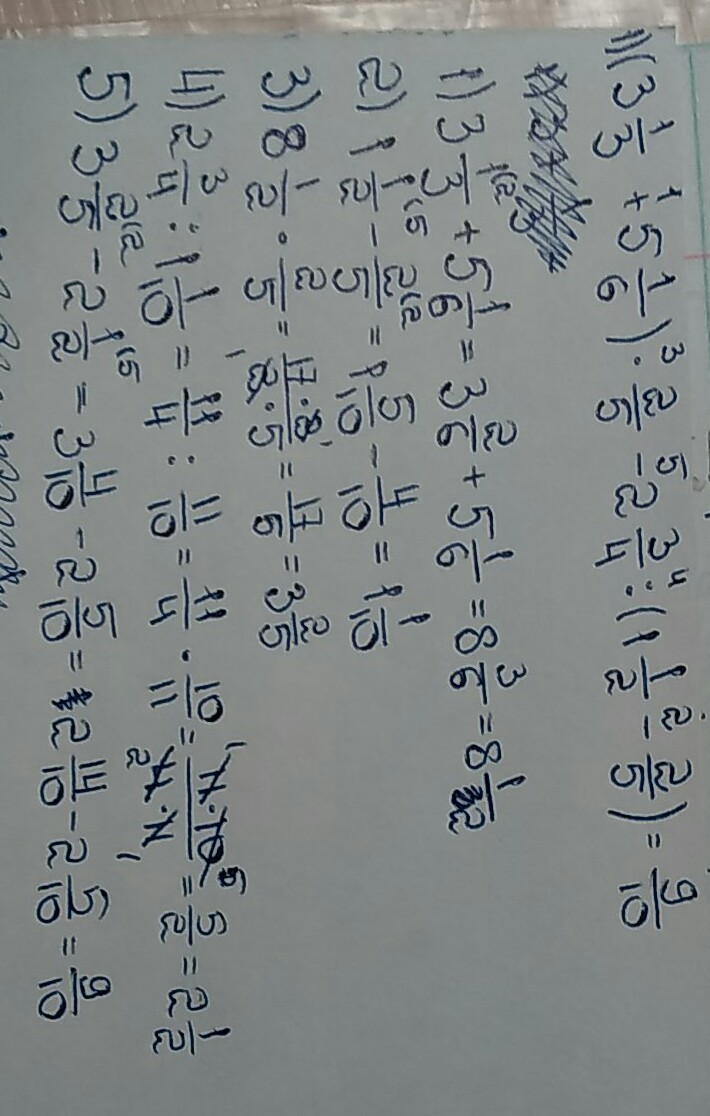 1) (3 1/3 +¹ 5 1/6) ·³ 2/5 -⁵ 2 3/4 :⁴ (1 1/2 -² 2/5) = 9/10
1) 3 1/3 ⁽² + 5 1/6 = 3 2/6 + 5 1/6 = 8 3/6 = 8 1/2
2) 1 1/2 ⁽⁵ - 2/5 ⁽² = 1 5/10 - 4/10 = 1 1/10
3) 8 1/2 · 2/5 = 17·2/2·5 = 17/5 = 3 2/5
4) 2 3/4 : 1 1/10 = 11/4 : 11/10 = 11/4 · 10/11 = 11·10/4·11 = 5/2 = 2 1/2
5) 3 2/5 ⁽² - 2 1/2 ⁽⁵ = 3 4/10 - 2 5/10 = 2 14/10 - 2 5/10 = 9/10